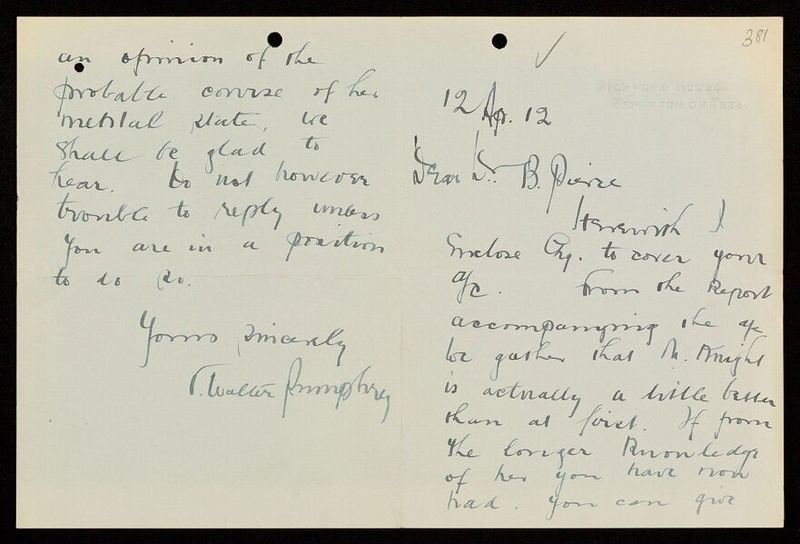 381
RICHMOND HOUSE,
STOCKTON ON TEES.
12 Ap. 12
Dear Dr. B. Pierce
Herewith I
Enclose Chq. to cover your
a/c. From the Report
accompanying the a/c
we gather that M. Knight
is actually a little better
than at first. If from
the longer knowledge
of her you have now
had. you can give
an opinion of the
probable course of her
mental state, we
shall be glad to
hear. Do not however
trouble to reply unless
you are in a position
to do so.
Yours sincerely
Walter